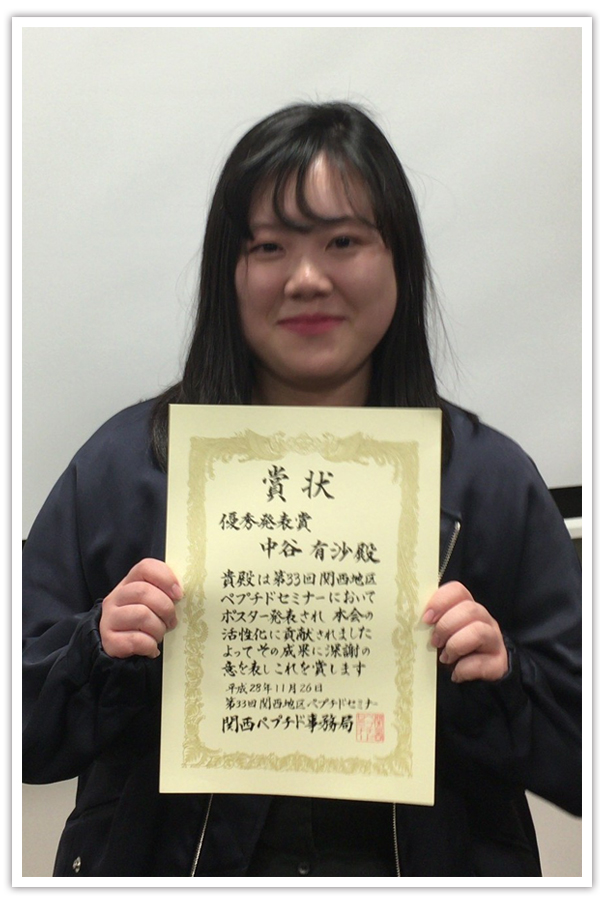 賞状
優秀発表賞
中谷 有沙殿
貴殿は第33回関西地区
ペプチドセミナーにおいて
ポスター発表され 本会の
活性化に貢献されました
よってその成果に深謝の
意を表しこれを賞します
平成28年11月26日
第33回関西地区ペプチドセミナー
関西ペプチド事務局